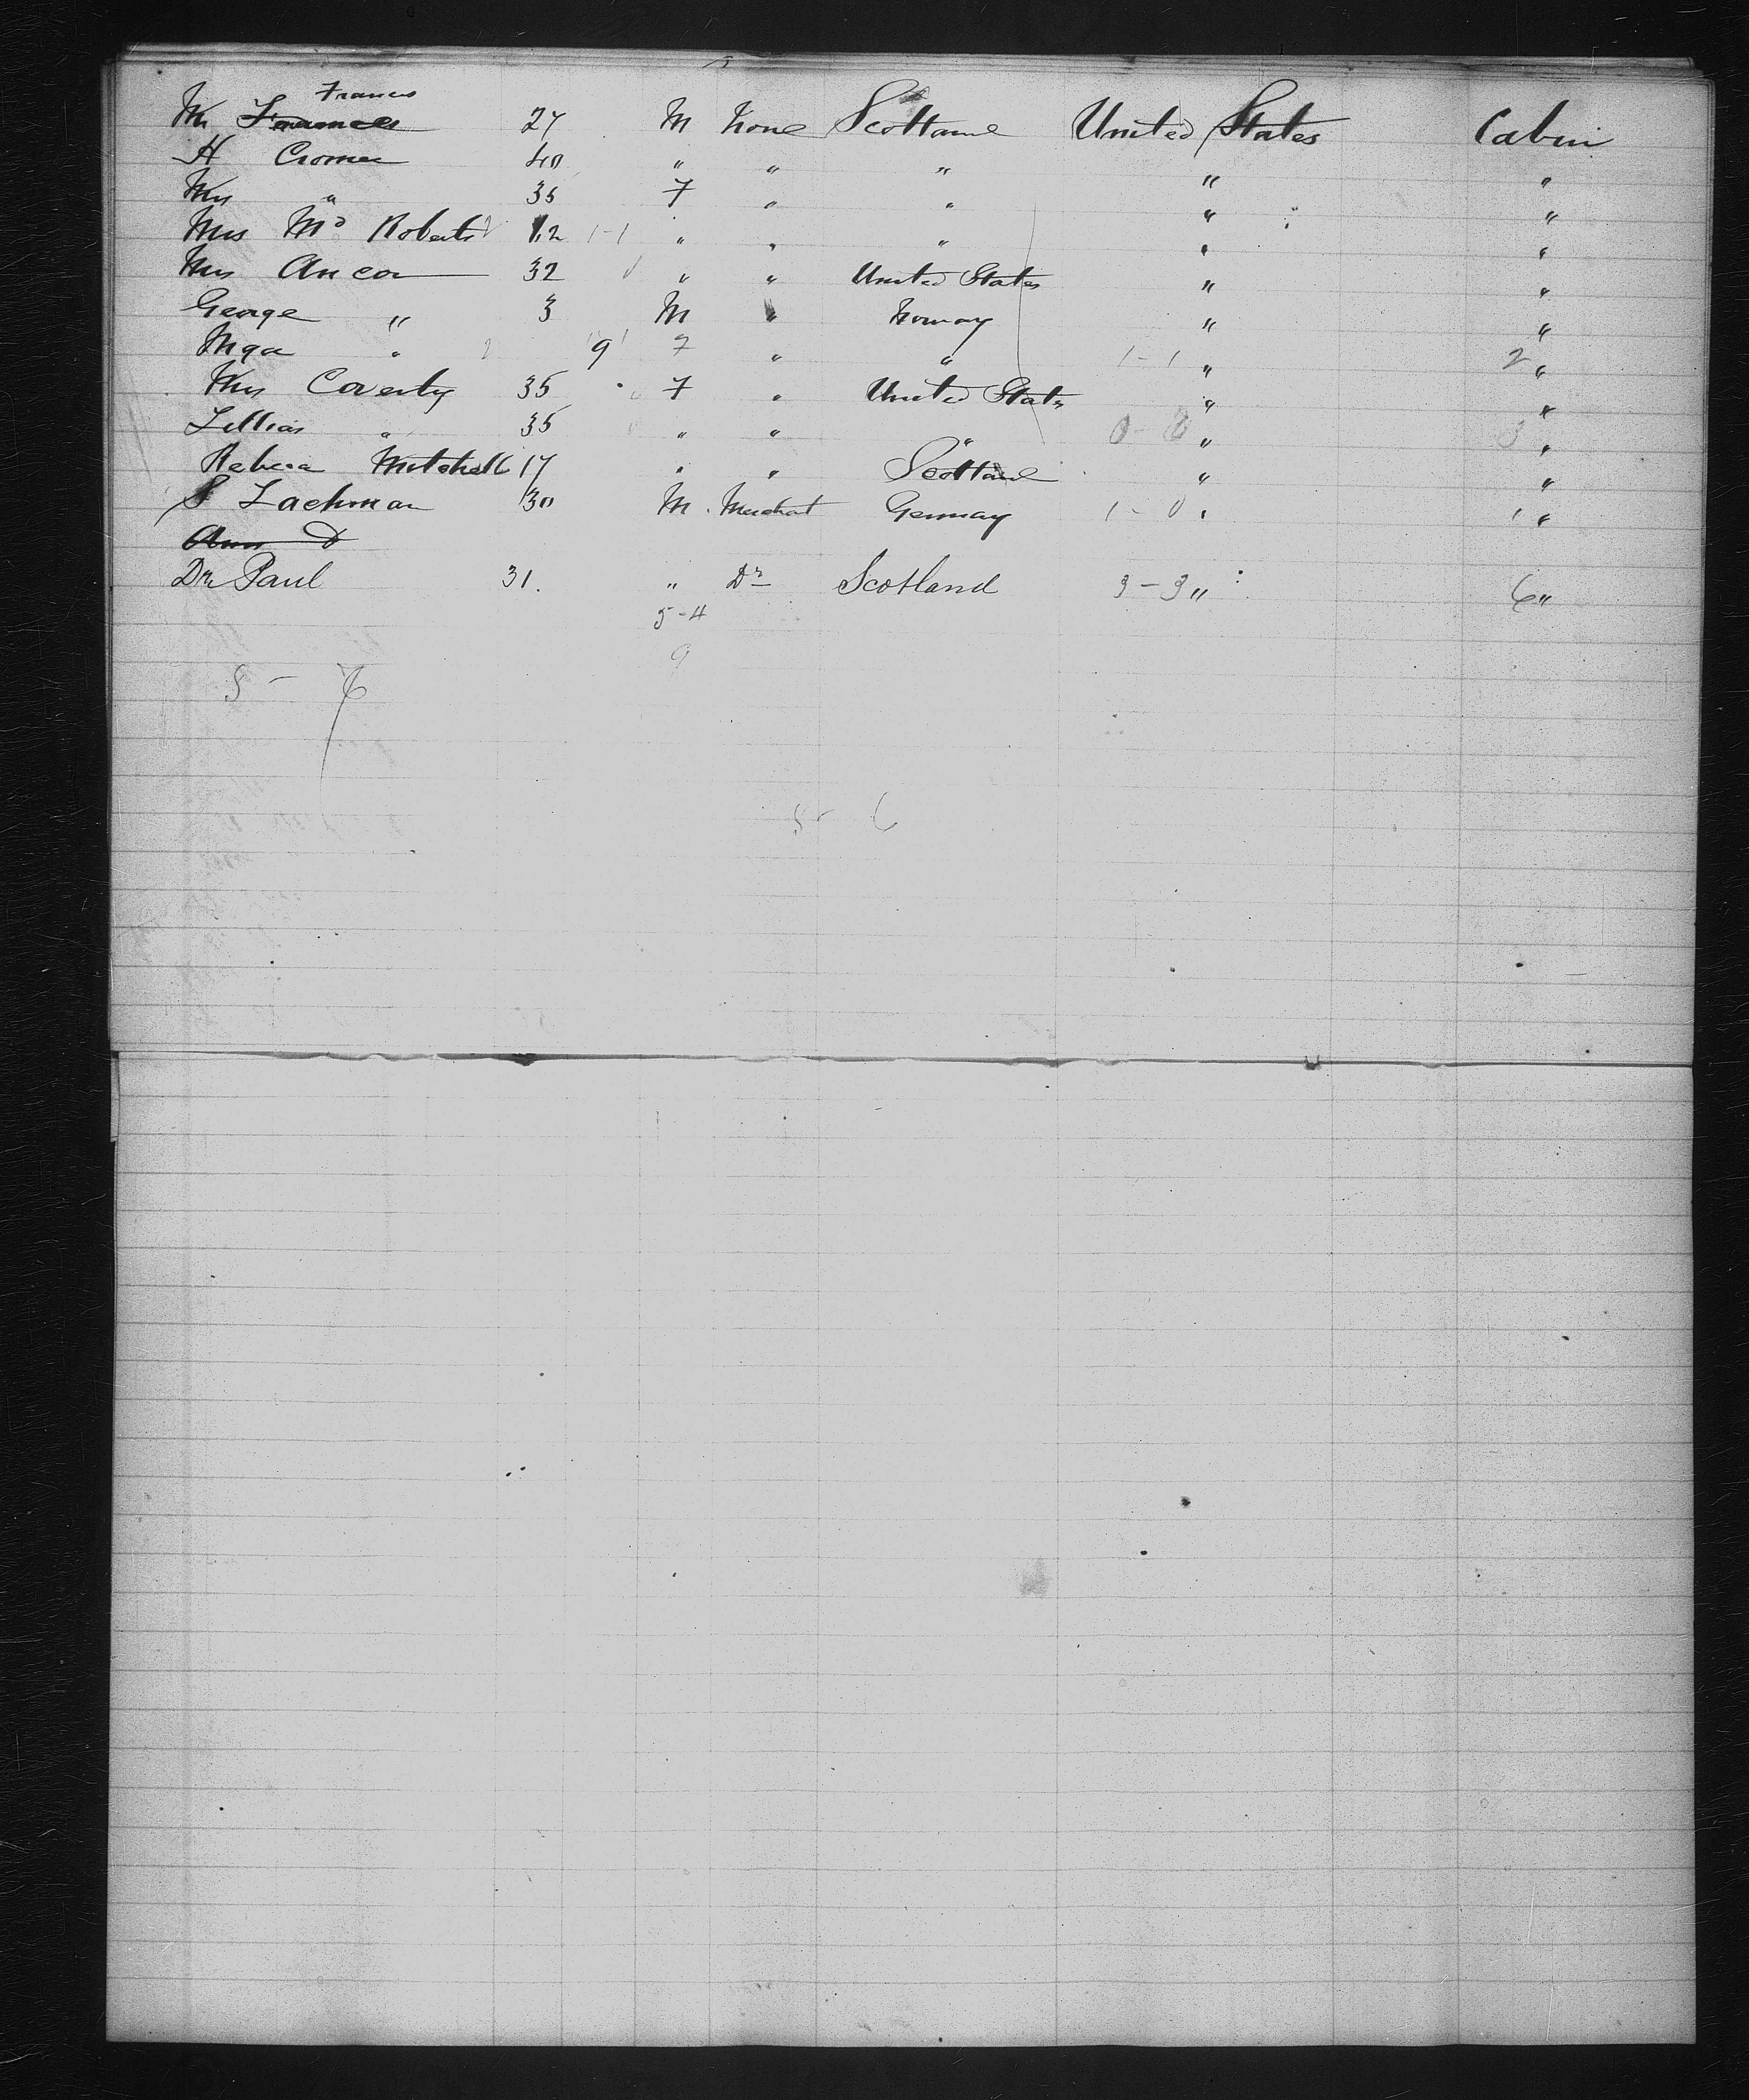 Francis
Mr 27 M None Scottand United States Cabin
H Cromer 40 " " " " "
Mrs " 35 F " " " "
Mrs Mc Roberts 12 1-1 " " " " "
Mrs Ancon 32 " " United States " "
George " 3 M " Norway " "
Inga " 9 F " " 1-1 " 2 "
Mrs Coverly 35 F " United States " "
Lillias " 35 " " " " 3 "
Rebeca Mitchell 17 " " Scottand " "
S Lachman 30 M Merchat Germay 1-0 " 1 "
Ann D
Dr Paul 31. " Dr Scotland 3-3 " 6 "
5-4
9
5 - 6
5 - 6